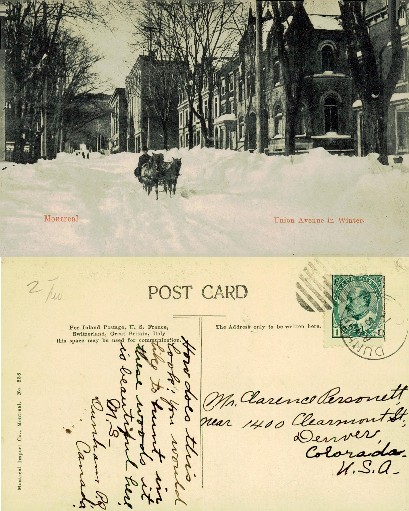 Montreal
Union Avenue in Winter.
2-/00
POST CARD
For Inland Postage, U. S. France,
Switzerland, Great Britain, Italy
this space may be used for communication.
The Address only to be written here.
Montreal Import Co., Montreal. No. 255
How does this
look: you would
like to hunt in
these woods it
is beautiful here
M. S.
Dunham PQ
Canada
Mr. Clarence Personett
near 1400 Clearmont St,
Denver
Colorado.
U.S.A.
DUN